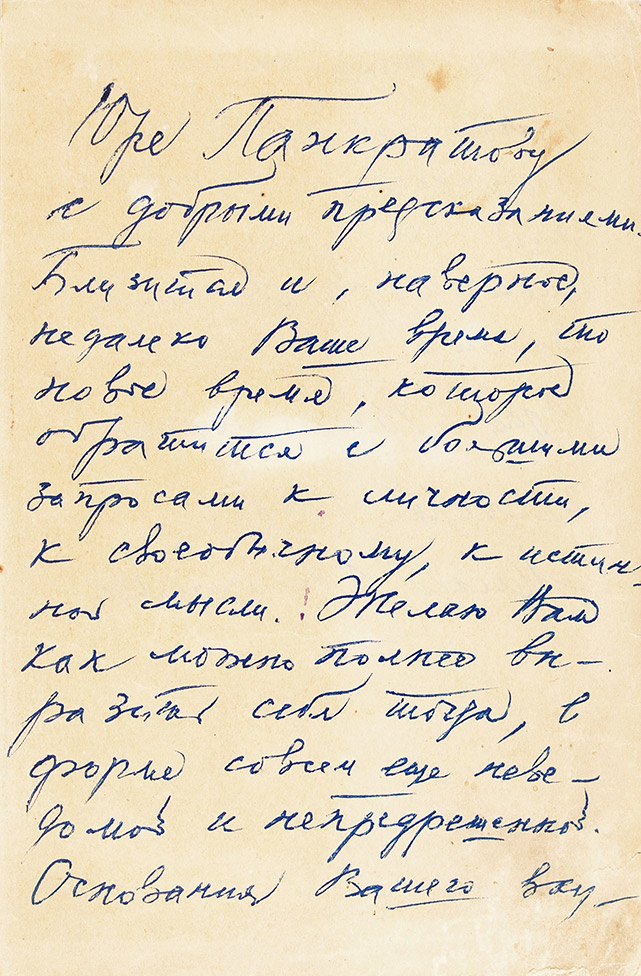 Юре Панкратову
с добрыми предсказаниями.
Близится и, наверное,
недалеко Ваше время, то
новое время, которое
обратится с большими
запросами к личности,
к своеобычному, к истин-
ной мысли. Желаю Вам
как можно полнее вы-
разить себя тогда, в
форме совсем еще неве-
домой и непредрешенной.
Основания Вашего вну-